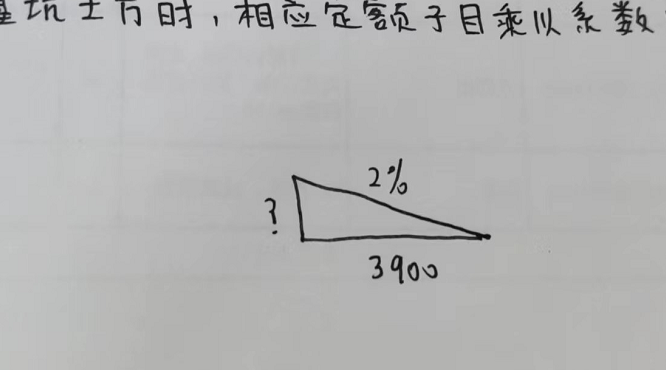 基坑土方时，相应定额子目乘以系数
2%
?
3900